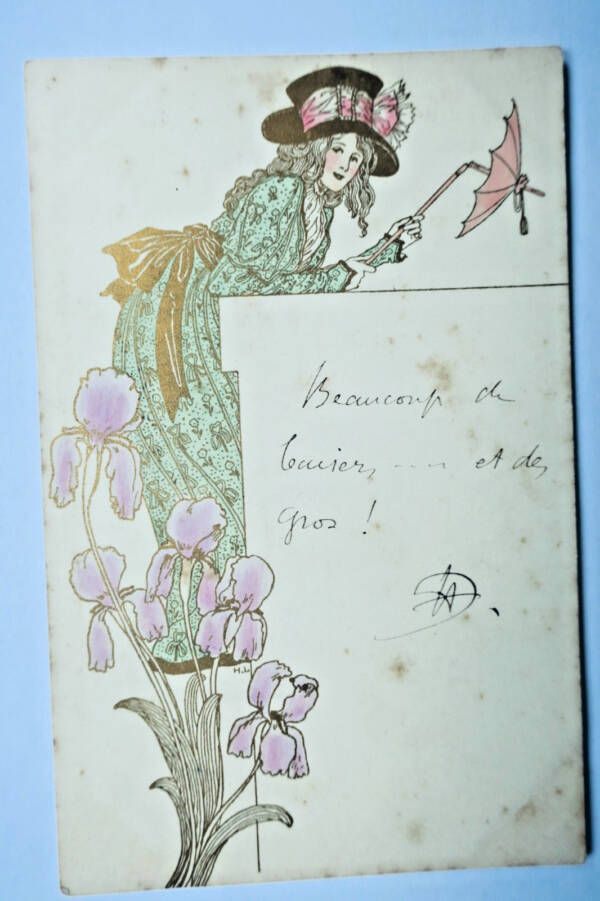 Beaucoup de
baisers .... et des
gros !
H.L